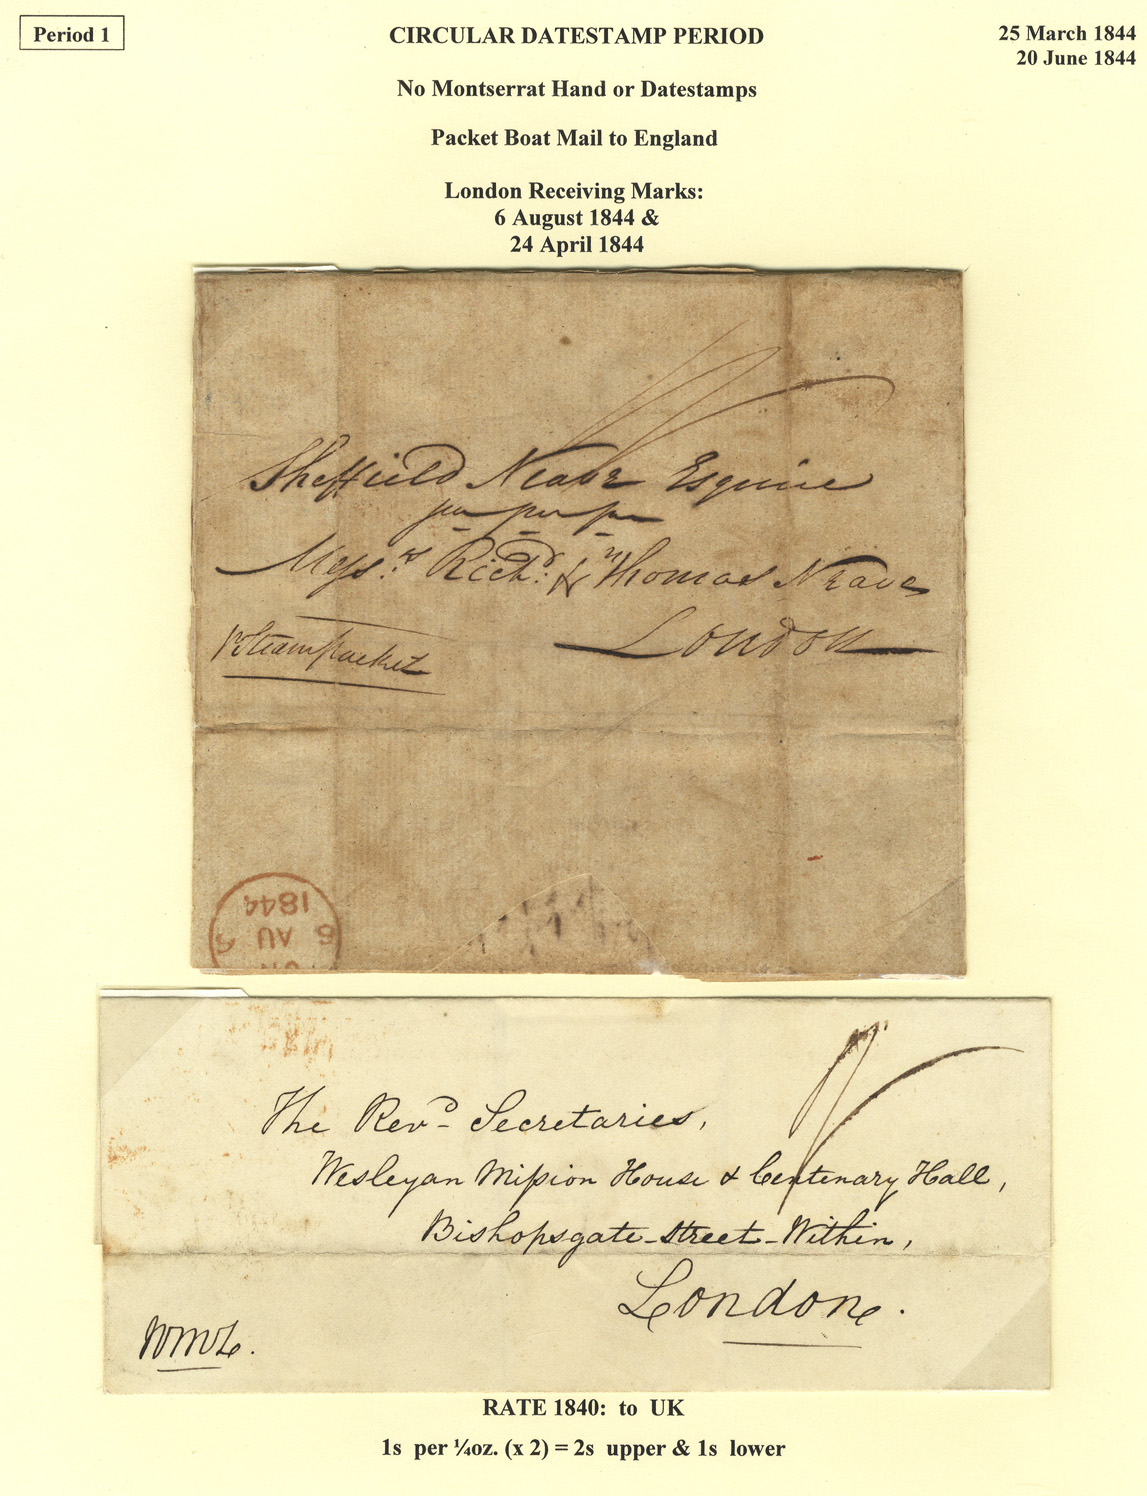 Period 1
CIRCULAR DATESTAMP PERIOD
25 March 1844
20 June 1844
No Montserrat Hand or Datestamps
Packet Boat Mail to England
London Receiving Marks:
6 August 1844 &
24 April 1844
Sheffield Neave Esquire
per per pr
Messrs. Richd. & Thomas Neave
London
pr Steam Packet
1844
6 AU 6
The Revd. Secretaries,
Wesleyan Mission House & Centenary Hall,
Bishopsgate-Street-Within,
London.
RATE 1840: to UK
1s per ¼oz. (x 2) = 2s upper & 1s lower